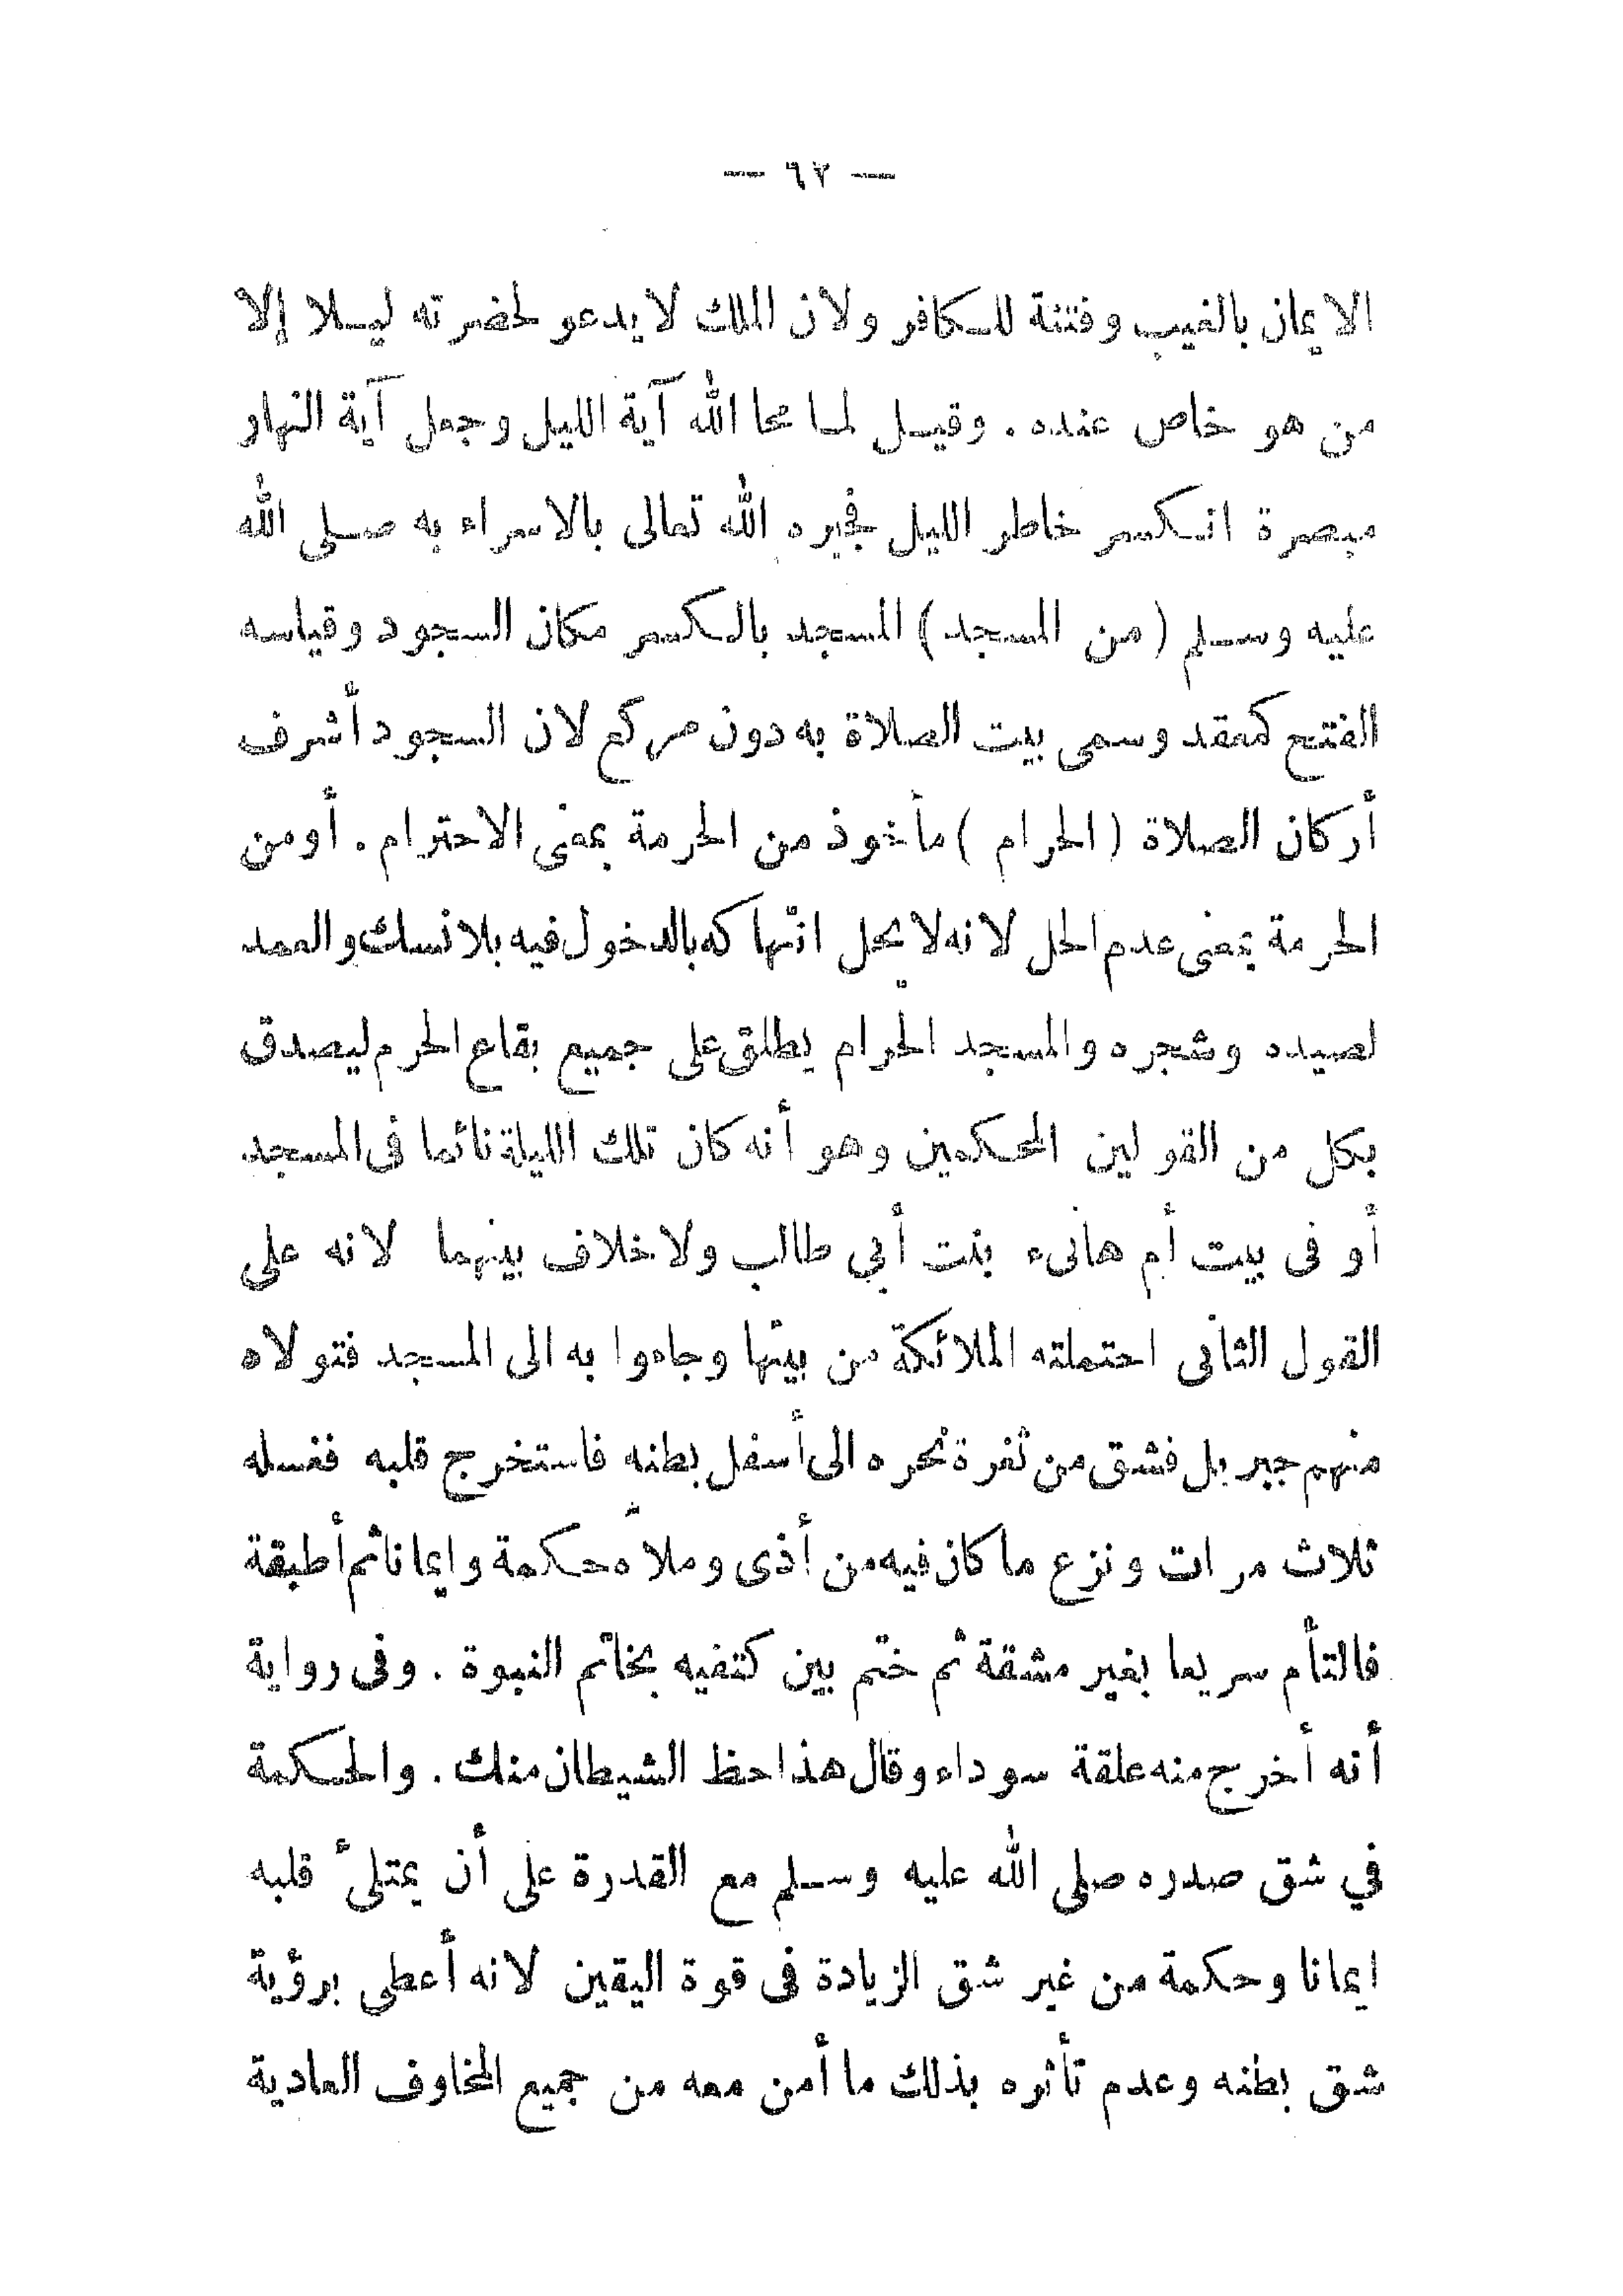 — ٦٢ —
الايمان بالغيب وفتنة للكافر ولان الملك لا يدعو لحضرته ليلا إلا
من هو خاص عنده . وقيل لما محا الله آية الليل وجعل آية النهار
مبصرة انكسر خاطر الليل فجبره الله تعالى بالاسراء به صلى الله
عليه وسلم (من المسجد) المسجد بالكسر مكان السجود وقياسه
الفتح كمقعد وسمى بيت الصلاة به دون مركع لان السجود أشرف
أركان الصلاة ( الحرام ) مأخوذ من الحرمة بمعنى الاحترام . أو من
الحرمة بمعنى عدم الحل لانه لا يحل انتهاكه بالدخول فيه بلا نسك والعمد
لصيده وشجره والمسجد الحرام يطلق على جميع بقاع الحرم ليصدق
بكل من القولين المحكمين وهو أنه كان تلك الليلة نائما فى المسجد
أو فى بيت أم هانىء بنت أبي طالب ولا خلاف بينهما لانه على
القول الثانى احتملته الملائكة من بيتها وجاءوا به الى المسجد فتولاه
منهم جبريل فشق من ثغرة نحره الى أسفل بطنه فاستخرج قلبه فغسله
ثلاث مرات ونزع ما كان فيه من أذى وملأه حكمة وايمانا ثم أطبقة
فالتأم سريعا بغير مشقة ثم ختم بين كتفيه بخاتم النبوة . وفى رواية
أنه أخرج منه علقة سوداء وقال هذا حظ الشيطان منك . والحكمة
في شق صدره صلى الله عليه وسلم مع القدرة على أن يمتلئ قلبه
ايمانا وحكمة من غير شق الزيادة فى قوة اليقين لانه أعطى برؤية
شق بطنه وعدم تأثره بذلك ما أمن معه من جميع المخاوف العادية